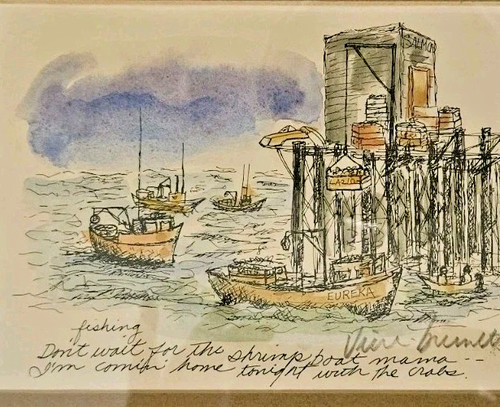 SALMON
LAZIO
EUREKA
fishing
Don't wait for the shrimp boat mama --
I'm comin' home tonight with the crabs.